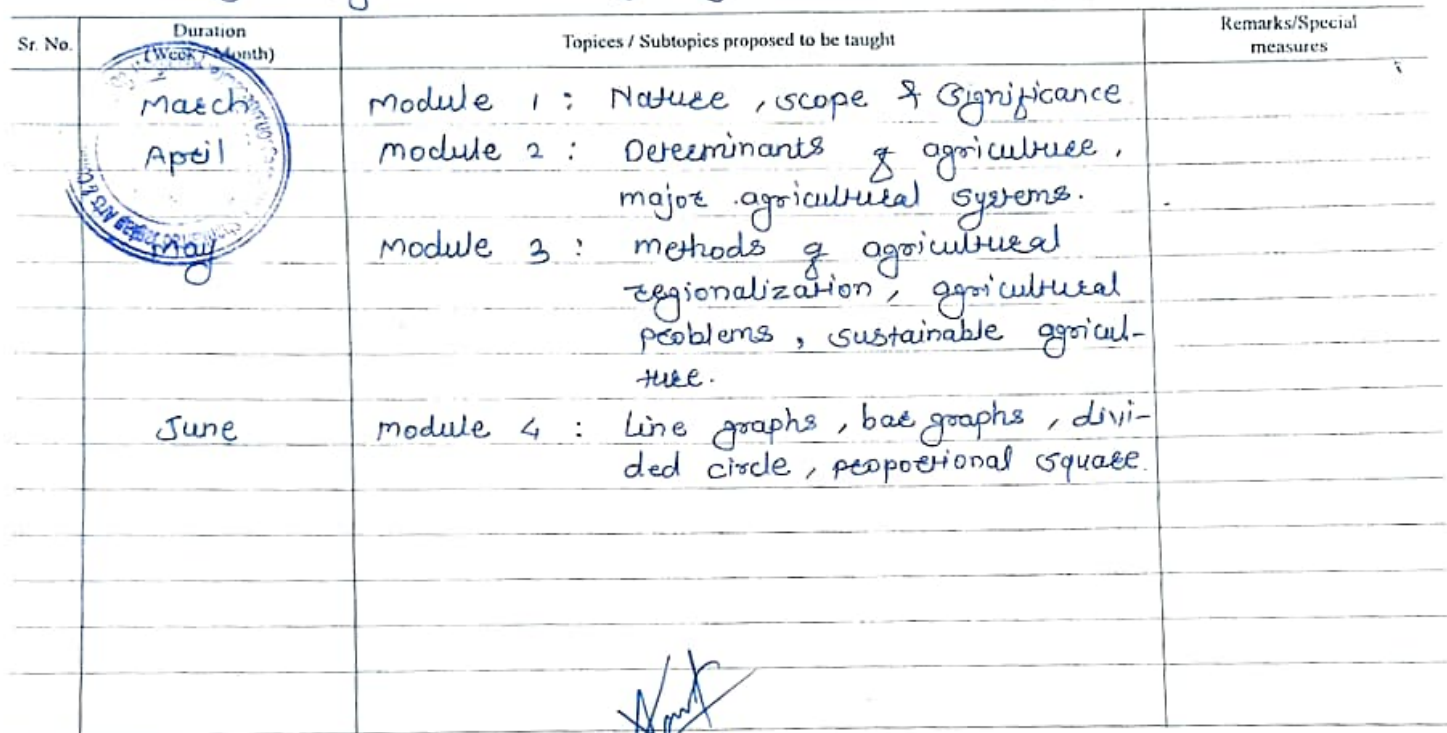 Sr. No. Duration (Week / Month) Topices / Subtopics proposed to be taught Remarks/Special measures
March Module 1 : Nature, scope & Significance
April Module 2 : Determinants of agriculture,
major agricultural systems.
May Module 3 : methods of agricultural
regionalization, agricultural
problems, sustainable agricul-
ture.
June Module 4 : Line graphs, bar graphs, divi-
ded circle, proportional square.